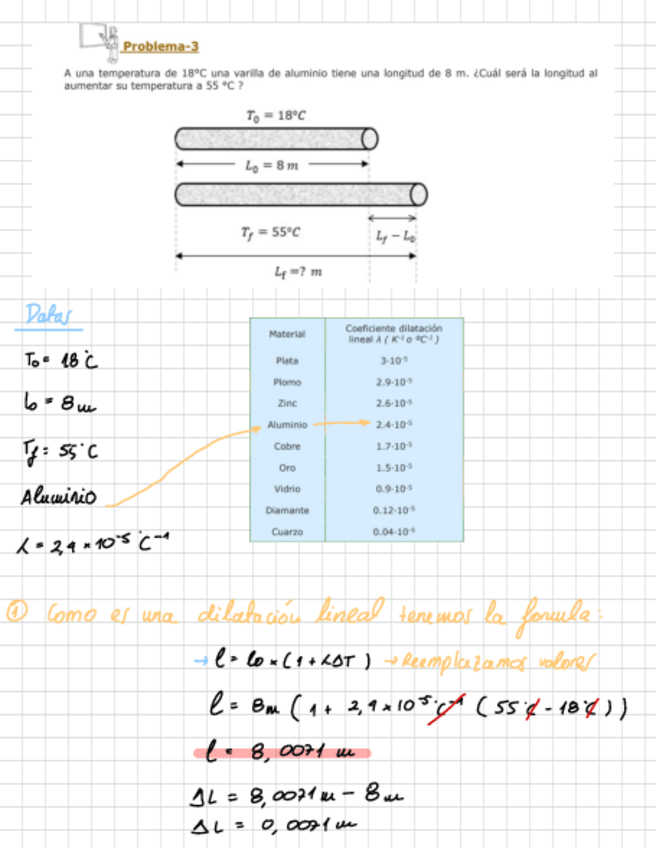 Problema-3
A una temperatura de 18ºC una varilla de aluminio tiene una longitud de 8 m. ¿Cuál será la longitud al
aumentar su temperatura a 55 ºC ?
T₀ = 18°C
L₀ = 8 m
T_f = 55°C
L_f − L₀
L_f =? m
Datos
T₀ = 18°C
l₀ = 8m
T_f = 55°C
Aluminio
λ = 2,4 × 10⁻⁵ °C⁻¹
Material Coeficiente dilatación lineal λ ( K⁻¹ o ºC⁻¹ )
Plata 3·10⁻⁵
Plomo 2.9·10⁻⁵
Zinc 2.6·10⁻⁵
Aluminio 2.4·10⁻⁵
Cobre 1.7·10⁻⁵
Oro 1.5·10⁻⁵
Vidrio 0.9·10⁻⁵
Diamante 0.12·10⁻⁵
Cuarzo 0.04·10⁻⁵
① Como es una dilatación lineal tenemos la formula:
→ l = l₀ × (1 + λΔT) → Reemplazamos valores
l = 8m (1 + 2,4 × 10⁻⁵ °C⁻¹ (55°C - 18°C))
l = 8,0071 m
ΔL = 8,0071m - 8m
ΔL = 0,0071m